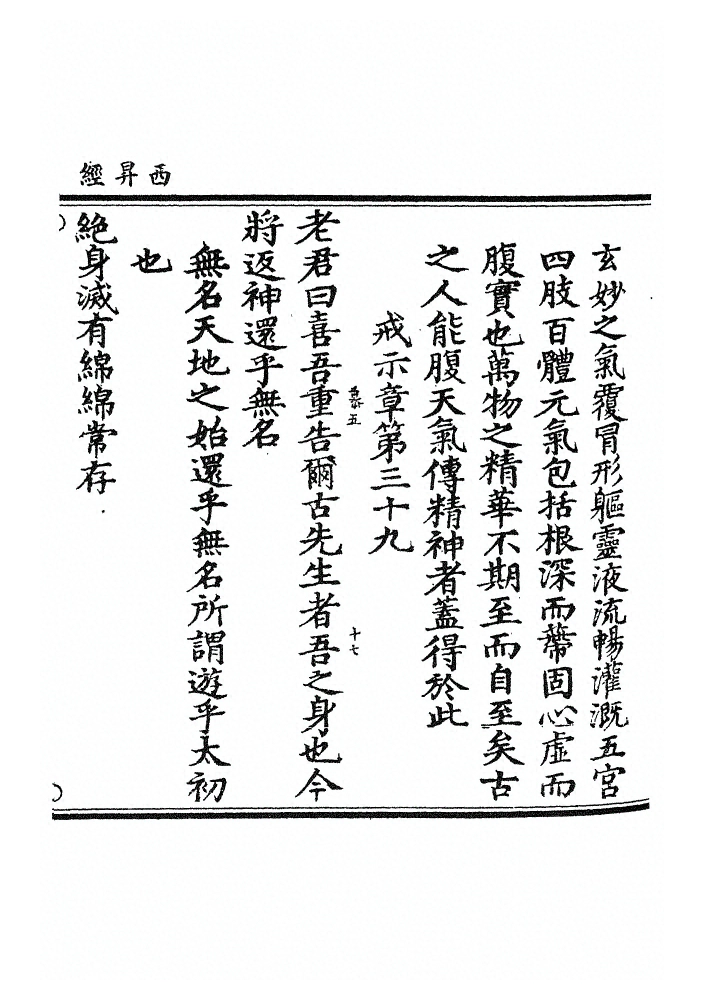 西昇經
玄妙之氣覆冐形軀靈液流暢灌溉五宮
四肢百體元氣包括根深而蔕固心虛而
腹實也萬物之精華不期至而自至矣古
之人能腹天氣傅精神者蓋得於此
戒示章第三十九
老君曰喜吾重告爾古先生者吾之身也今
十七
將返神還乎無名
無名天地之始還乎無名所謂遊乎太初
也
絕身滅有綿綿常存